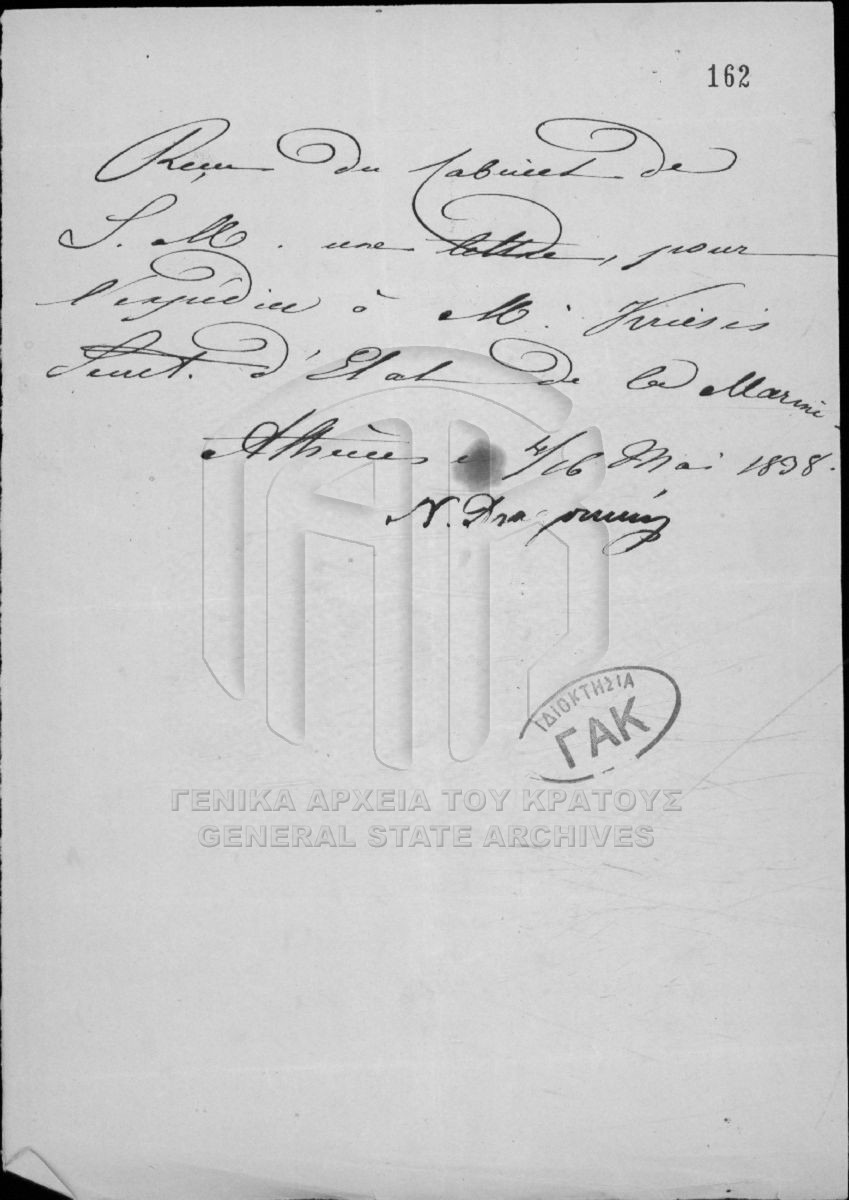 162
Reçu du Cabinet de
S. M. une lettre, pour
l'expédier à M. Kriésis
Secret. d'Etat de la Marine
Athènes 4/16 Mai 1838.
N. Dra
ΙΔΙΟΚΤΗΣΙΑ
ΓΑΚ
ΓΕΝΙΚΑ ΑΡΧΕΙΑ ΤΟΥ ΚΡΑΤΟΥΣ
GENERAL STATE ARCHIVES